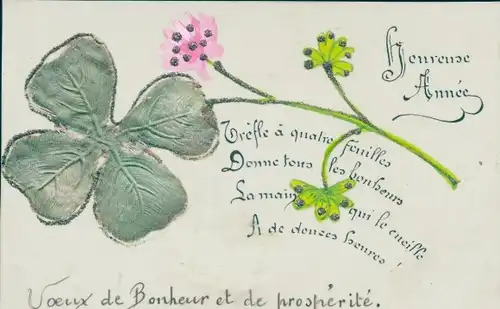 Heureuse
Année
Trèfle à quatre feuilles
Donne tous les bonheurs
La main qui le cueille
A de douces heures!
Vœux de Bonheur et de prospérité.